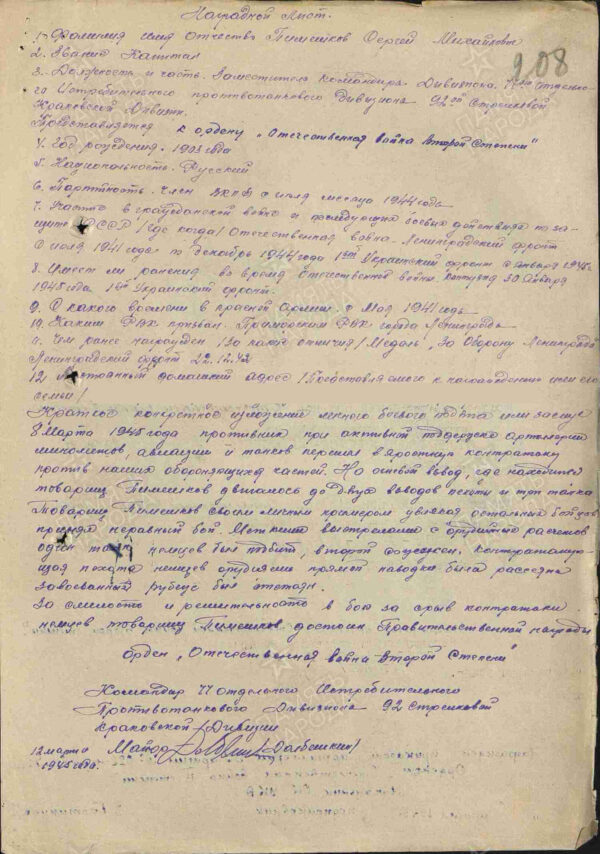 Наградной Лист.
208
1. Фамилия имя Отчество Пимешков Сергей Михайлович
2. Звание Капитан
3. Должность и часть. Заместитель Командира Дивизиона.
го Истребительного противотанкового дивизиона 92ой Стрелковой
Краковской Дивизии.
Представляется к ордену „Отечественная война Второй Степени"
4. Год рождения. 1903 года
5. Национальность. Русский
6. Партийность. Член ВКПб с июля месяца 1944 года
7. Участие в гражданской войне и последующих боевых действиях по за-
щите СССР /где когда/ Отечественная война. Ленинградский фронт
С июля 1941 года по Декабрь 1944 года 1ый Украинский фронт с Января 1945г.
8. Имеет ли ранения во время отечественной войны Контужен 30 Января
1945 года 1ый Украинский фронт.
9. С какого времени в красной Армии. с Мая 1941 года
10. Каким РВК призван. Приморским РВК города Ленинграда
11. Чем ранее награжден /за какие отличия/ Медаль „За Оборону Ленинграда
Ленинградский фронт 22.12.42
12. Постоянный домашний адрес /Представляемого к награждению или его
семьи/
Краткое конкретное изложение личного боевого подвига или заслуг
8 Марта 1945 года противник при активной поддержке артиллерии
минометов, авиации и танков перешел в яростную контратаку
против наших обороняющихся частей. На огневой взвод, где находился
товарищ Пимешков двигалось до двух взводов пехоты и три танка
Товарищ Пимешков своим личным примером увлекая остальных бойцов
принял неравный бой. Меткими выстрелами с орудийных расчетов
один танк немцев был подбит, второй Контратакую-
щая пехота немцев орудиями прямой наводки была рассеяна
завоеванный рубеж был отстоян.
За смелость и решительность в бою за срыв контратаки
немцев товарищ Пимешков достоин Правительственной награды
орден „Отечественная война Второй Степени"
Командир 77 отдельного Истребительного
Противотанкового Дивизиона 92 Стрелковой
Краковской Дивизии
12 марта Майор
1945 года.